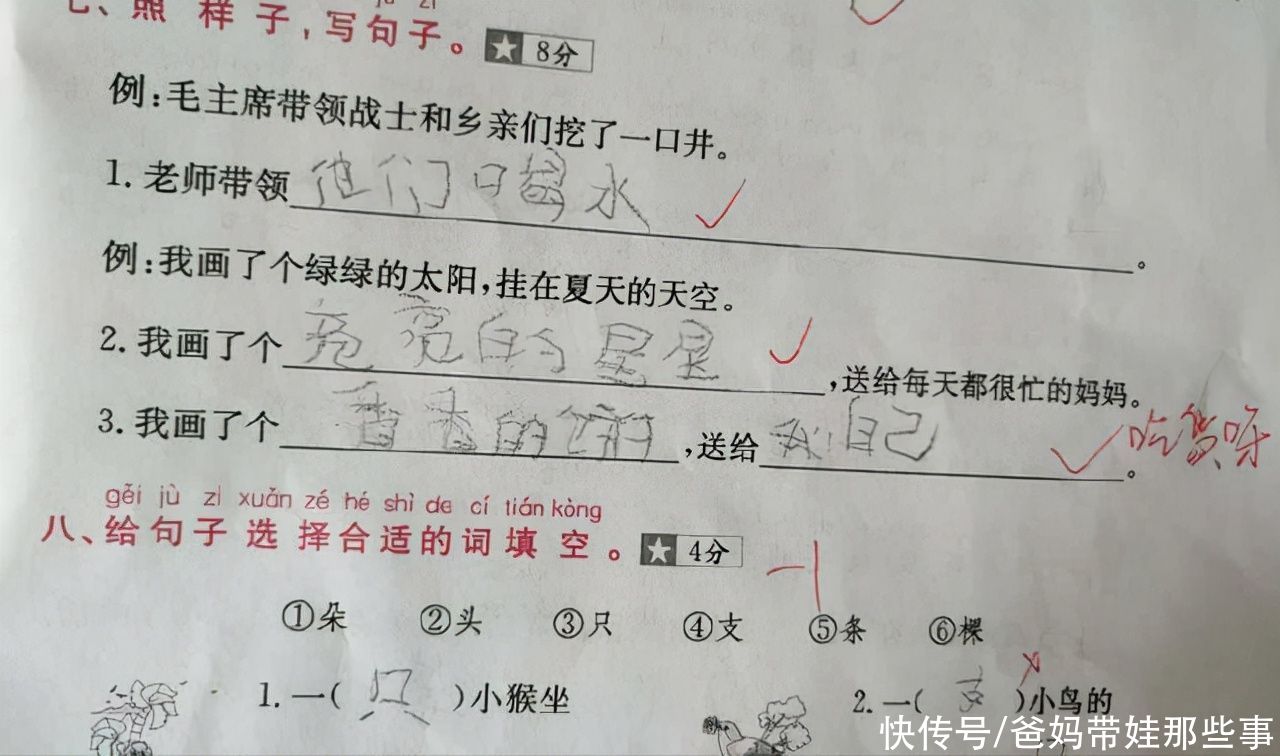 七、照样子,写句子。 ★ 8分
例:毛主席带领战士和乡亲们挖了一口井。
1. 老师带领他们口喝水。
例:我画了个绿绿的太阳,挂在夏天的天空。
2. 我画了个亮亮的星星,送给每天都很忙的妈妈。
3. 我画了个香香的饼,送给我自己。吃货呀
gěi jù zi xuǎn zé hé shì de cí tián kòng
八、给句子选择合适的词填空。 ★ 4分
-1
①朵 ②头 ③只 ④支 ⑤条 ⑥棵
1. 一(只)小猴坐 2. 一(支)小鸟的
快传号/爸妈带娃那些事